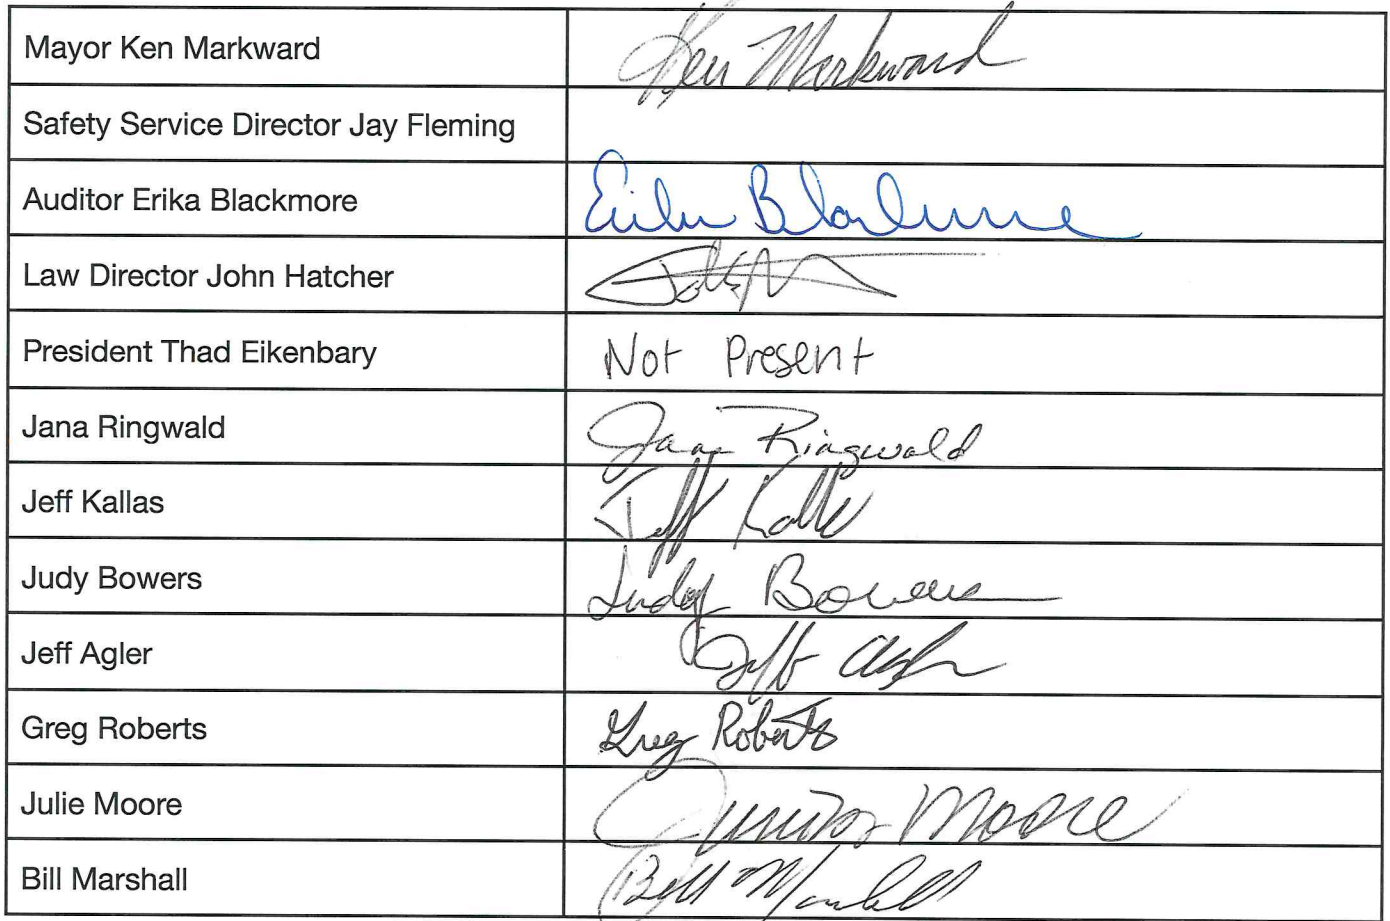 Mayor Ken Markward Ken Markward
Safety Service Director Jay Fleming
Auditor Erika Blackmore Erika Blackmore
Law Director John Hatcher
President Thad Eikenbary Not Present
Jana Ringwald Jana Ringwald
Jeff Kallas Jeff Kallas
Judy Bowers Judy Bowers
Jeff Agler Jeff Agler
Greg Roberts Greg Roberts
Julie Moore Moore
Bill Marshall Bill Marshall